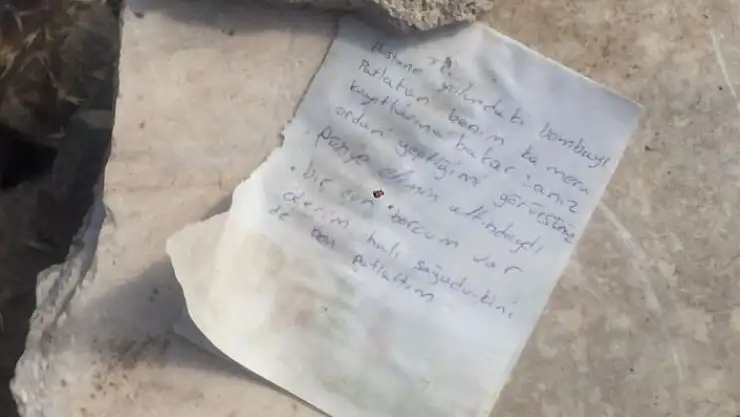 Hastane yolundaki bombayı
Patlatan benim kamera
kayıtlarına bakarsanız
ordan yaptığımı görürsünüz
Polise elimin altındaydı
bir can borcum var
öderim halı sağudu-kini
de ben patlattım